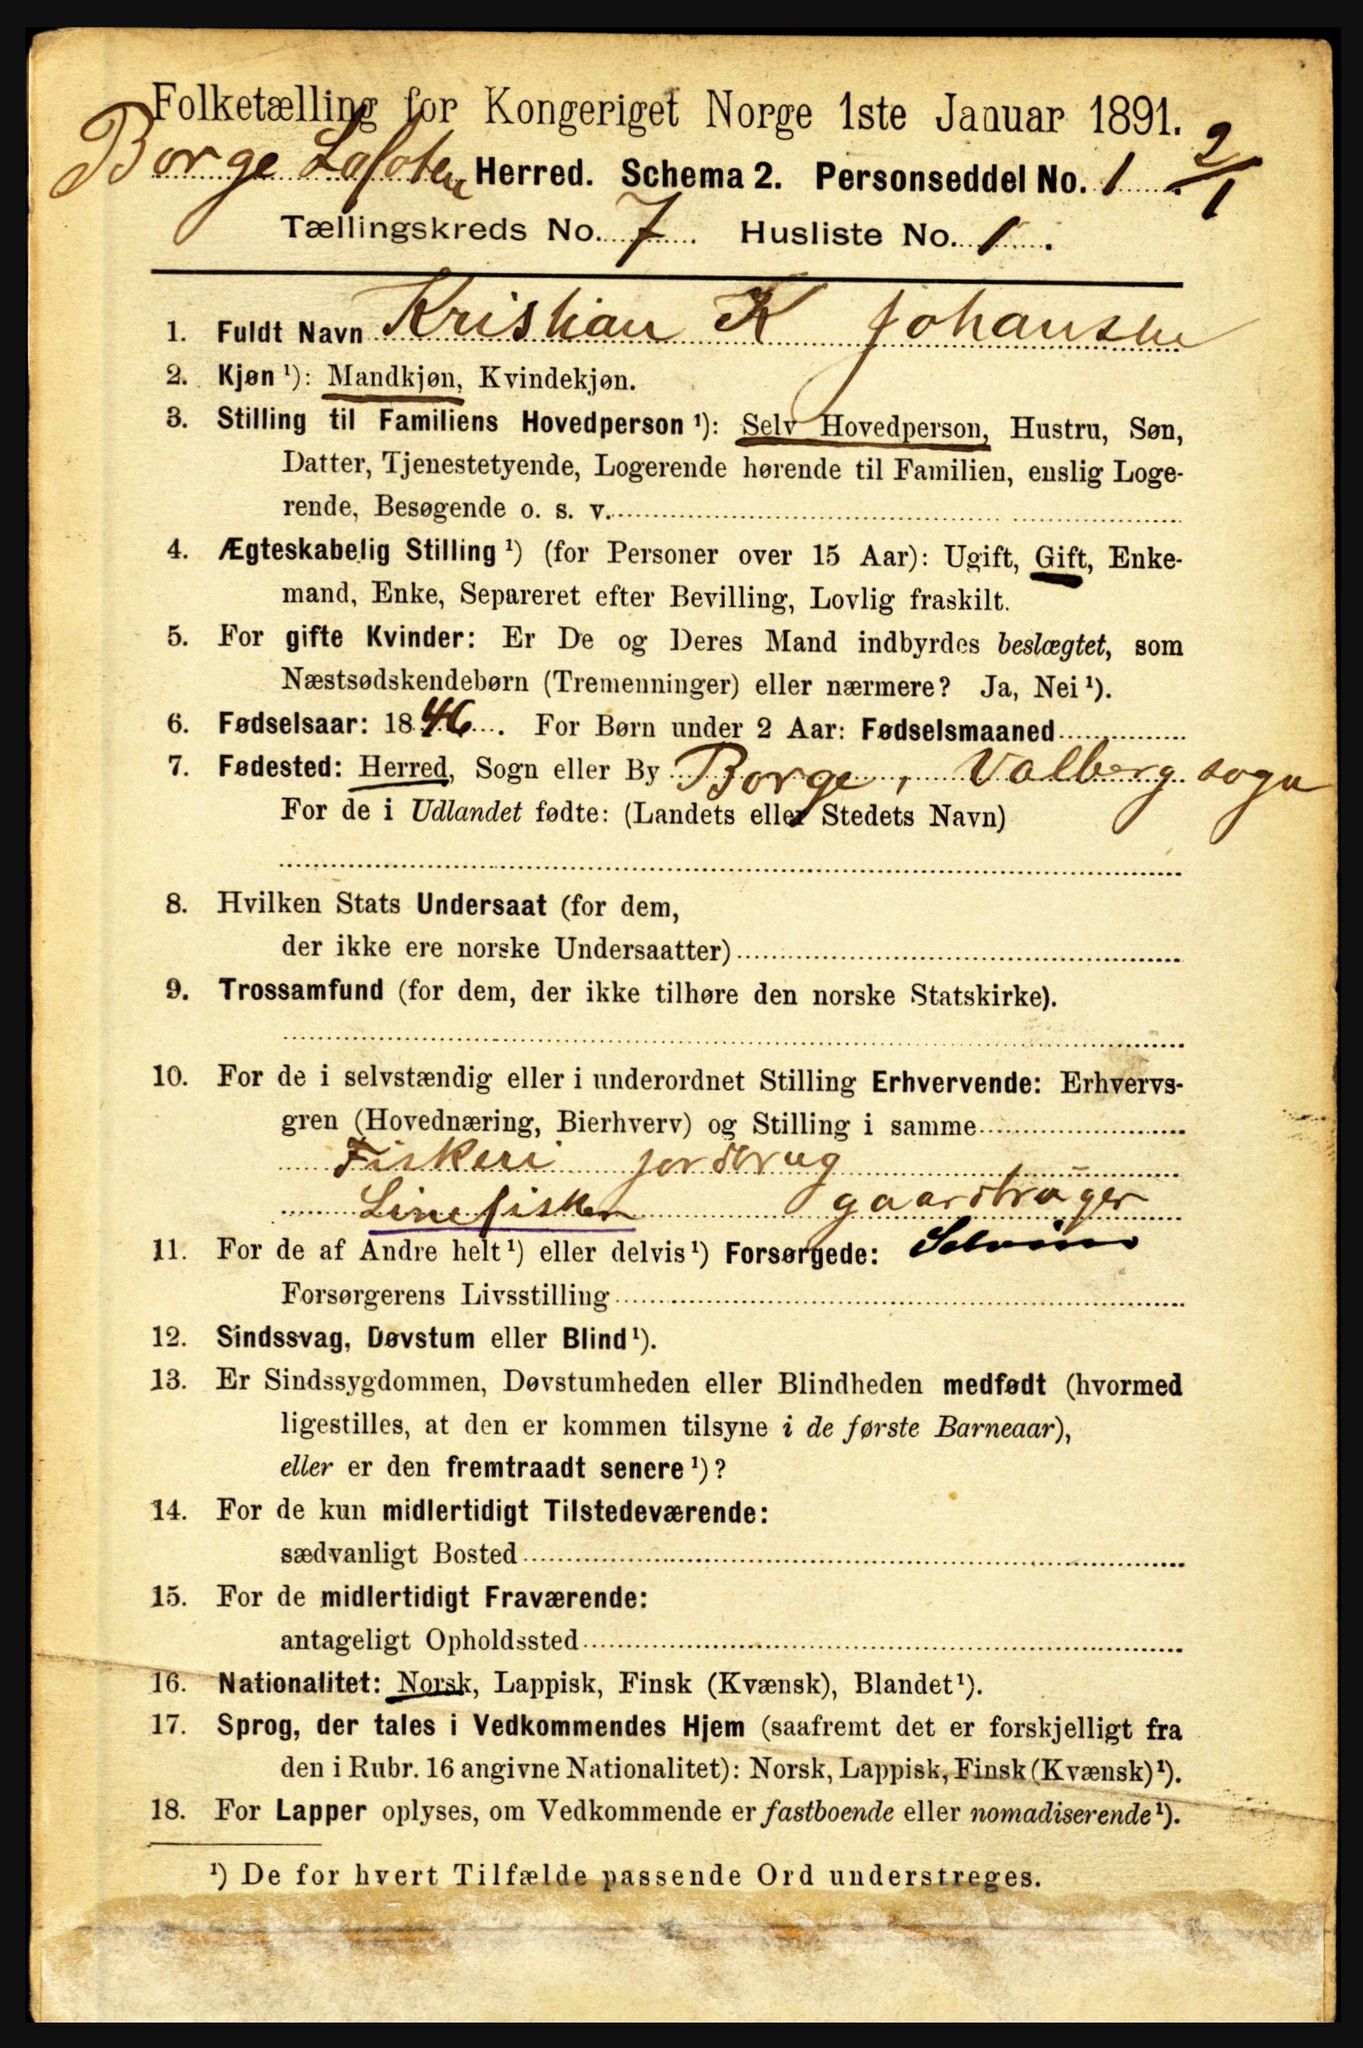 Folketælling for Kongeriget Norge 1ste Januar 1891.
Borge Lofoten Herred. Schema 2. Personseddel No. 1. 2/1
Tællingskreds No. 7. Husliste No. 1.
1. Fuldt Navn Kristian K Johansen
2. Kjøn ¹): Mandkjøn, Kvindekjøn.
3. Stilling til Familiens Hovedperson ¹): Selv Hovedperson, Hustru, Søn,
Datter, Tjenestetyende, Logerende hørende til Familien, enslig Loge-
rende, Besøgende o. s. v.
4. Ægteskabelig Stilling ¹) (for Personer over 15 Aar): Ugift, Gift, Enke-
mand, Enke, Separeret efter Bevilling, Lovlig fraskilt.
5. For gifte Kvinder: Er De og Deres Mand indbyrdes beslægtet, som
Næstsødskendebørn (Tremenninger) eller nærmere? Ja, Nei ¹).
6. Fødselsaar: 1846. For Børn under 2 Aar: Fødselsmaaned
7. Fødested: Herred, Sogn eller By Borge, Valberg sogn
For de i Udlandet fødte: (Landets eller Stedets Navn)
8. Hvilken Stats Undersaat (for dem,
der ikke ere norske Undersaatter)
9. Trossamfund (for dem, der ikke tilhøre den norske Statskirke).
10. For de i selvstændig eller i underordnet Stilling Erhvervende: Erhvervs-
gren (Hovednæring, Bierhverv) og Stilling i samme
Fiskeri jordbrug
Linefisker gaardbruger
11. For de af Andre helt ¹) eller delvis ¹) Forsørgede:
Forsørgerens Livsstilling
12. Sindssvag, Døvstum eller Blind ¹).
13. Er Sindssygdommen, Døvstumheden eller Blindheden medfødt (hvormed
ligestilles, at den er kommen tilsyne i de første Barneaar),
eller er den fremtraadt senere ¹)?
14. For de kun midlertidigt Tilstedeværende:
sædvanligt Bosted
15. For de midlertidigt Fraværende:
antageligt Opholdssted
16. Nationalitet: Norsk, Lappisk, Finsk (Kvænsk), Blandet ¹).
17. Sprog, der tales i Vedkommendes Hjem (saafremt det er forskjelligt fra
den i Rubr. 16 angivne Nationalitet): Norsk, Lappisk, Finsk (Kvænsk) ¹).
18. For Lapper oplyses, om Vedkommende er fastboende eller nomadiserende ¹).
¹) De for hvert Tilfælde passende Ord understreges.